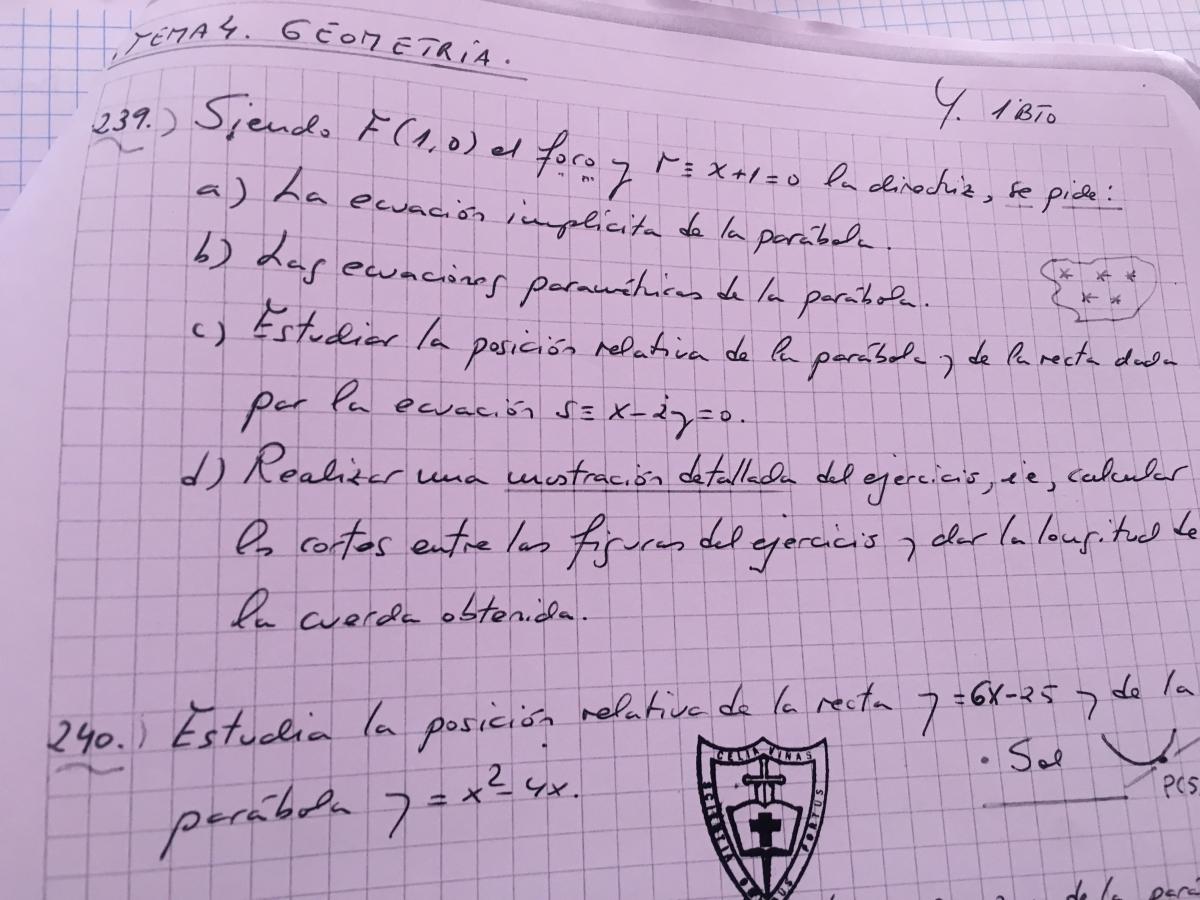 TEMA 4. GEOMETRÍA.
Y. 1ºBTO
239.) Siendo F(1,0) el foco y r≡ x+1=0 la directriz, se pide:
a) La ecuación implícita de la parábola.
b) Las ecuaciones paramétricas de la parábola.
c) Estudiar la posición relativa de la parábola y de la recta dada
por la ecuación s≡ x-2y=0.
d) Realizar una mostración detallada del ejercicio, ie, calcular
los cortes entre las figuras del ejercicio y dar la longitud de
la cuerda obtenida.
240.) Estudia la posición relativa de la recta y=6x-25 y de la
parábola y = x²-4x.
• Sol
PCS
CELIA VIÑAS
SCIENTIA
PORTUS
de la pará